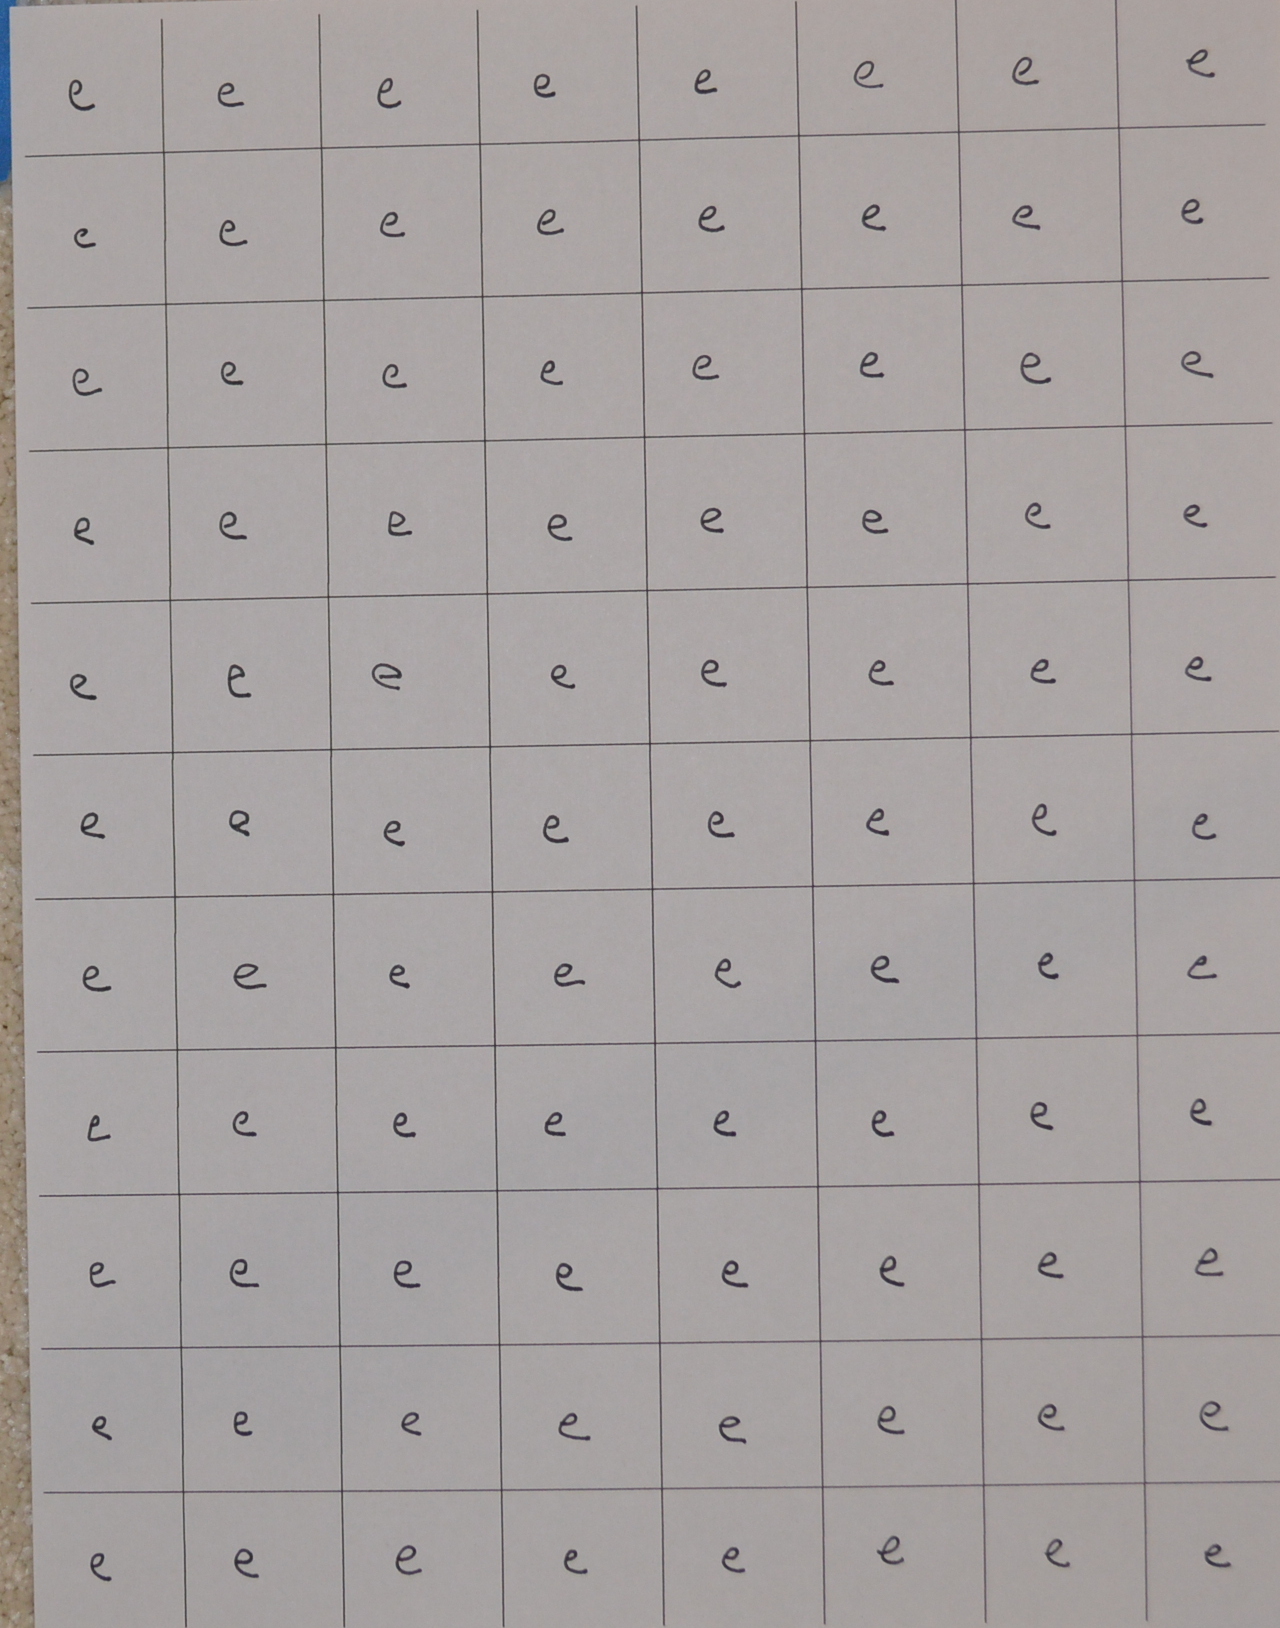 e e e e e e e e
e e e e e e e e
e e e e e e e e
e e e e e e e e
e e e e e e e e
e e e e e e e e
e e e e e e e e
e e e e e e e e
e e e e e e e e
e e e e e e e e
e e e e e e e e